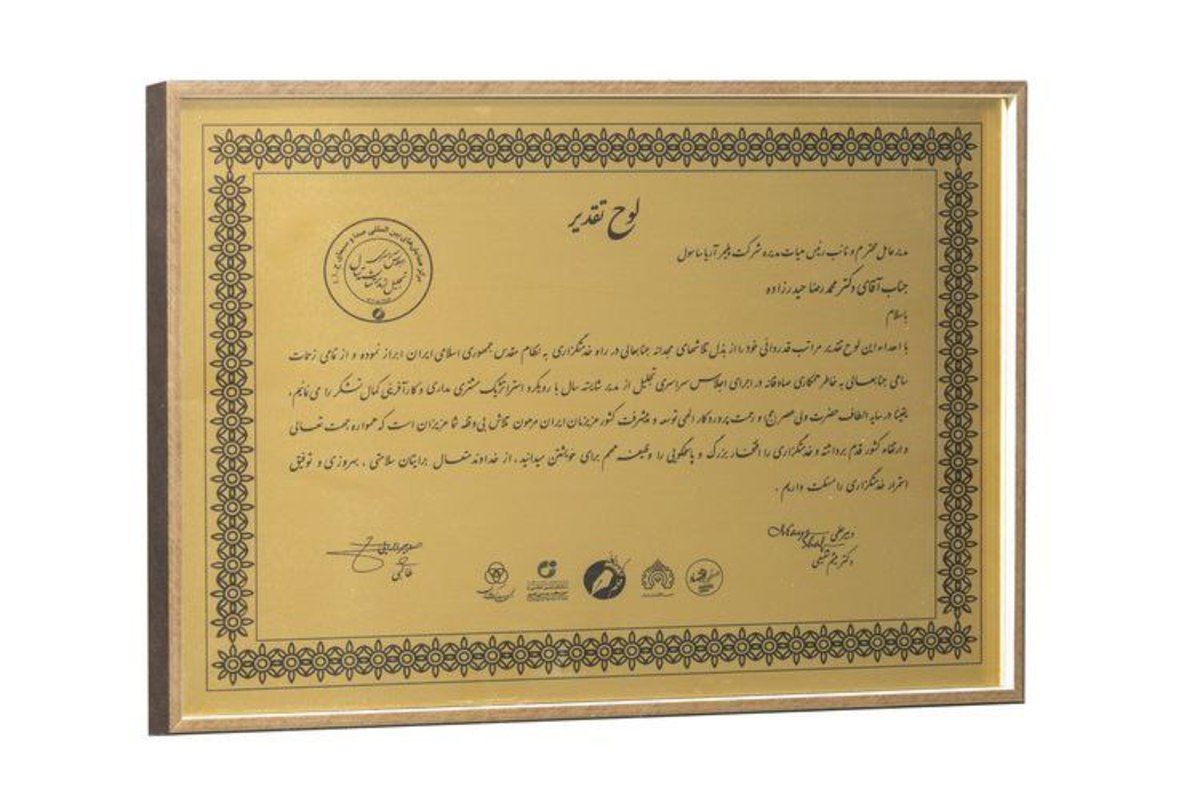 لوح تقدیر
مدیرعامل محترم و نائب رئیس هیات مدیره شرکت پلیمر آریا ساسول
جناب آقای دکتر محمد رضا حیدرزاده
باسلام
با اهداء این لوح تقدیر مراتب قدردانی خود را از بذل تلاشهای مجدانه جنابعالی در راه خدمتگزاری به نظام مقدس جمهوری اسلامی ایران ابراز نموده و از تمامی زحمات
سامی جنابعالی به خاطر همکاری صادقانه در اجرای اجلاس سراسری تجلیل از مدیر شایسته سال با رویکرد استراتژیک مشتری مداری و کارآفرینی کمال تشکر را می نمائیم،
یقینا در سایه الطاف حضرت ولی عصر (عج) و رحمت پروردگار الهی توسعه و پیشرفت کشور عزیزمان ایران مرهون تلاش بی وقفه شما عزیزان است که همواره جهت تعالی
و ارتقاء کشور قدم برداشته و خدمتگزاری را افتخار بزرگ و پاسخگویی را وظیفه مهم برای خویشتن میدانید، از خداوند متعال برایتان سلامتی ، بهروزی و توفیق
استمرار خدمتگزاری را مسئلت داریم .
دبیر علمی
دکتر میثم شفیعی